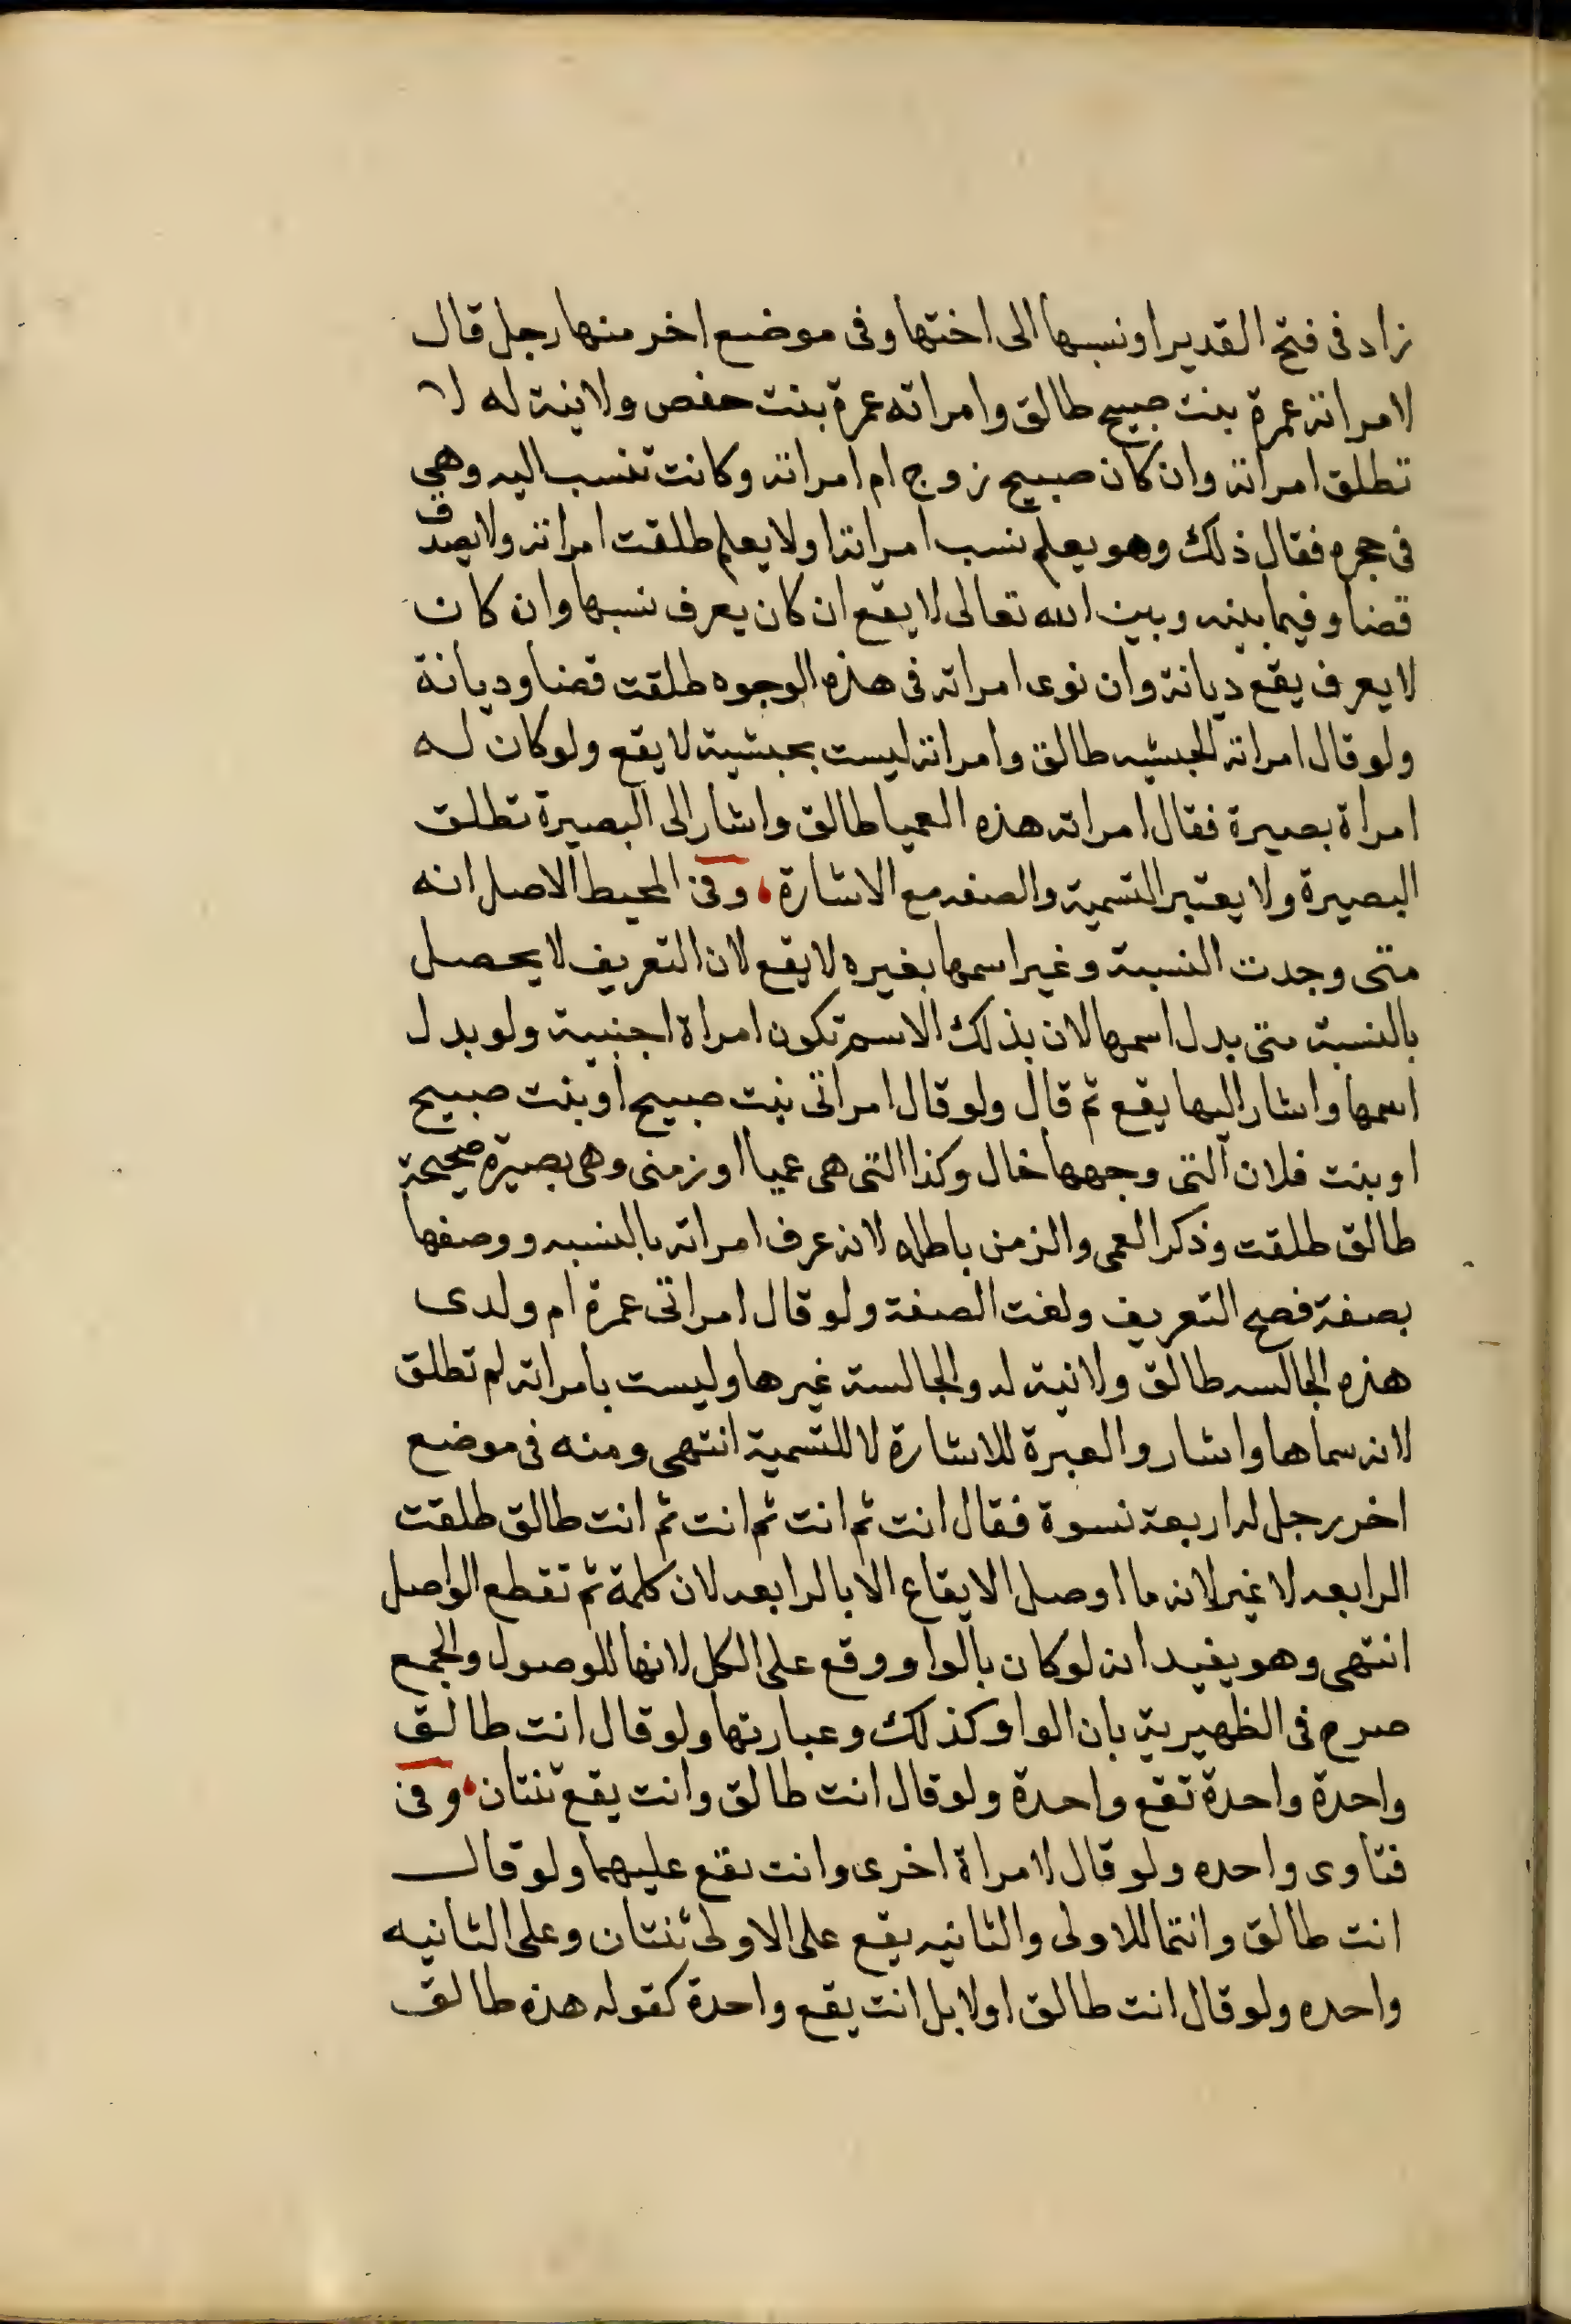 زاد فى فتح القدير او نسبها الى اختها وفى موضع اخر منها رجل قال
لامراته عمرة بنت صبيح طالق وامراته عمرة بنت حفص ولا نية له لا
تطلق امراته وان كان صبيح زوج ام امراته وكانت تنسب اليه وهي
فى حجره فقال ذلك وهو يعلم نسب امراته او لا يعلم طلقت امراته ولا يصدق
قضا وفيما بينه وبين الله تعالى لا يقع ان كان يعرف نسبها وان كان
لا يعرف يقع ديانة وان نوى امراته فى هذه الوجوه طلقت قضا وديانة
ولو قال امراته الحبشيه طالق وامراته ليست بحبشية لا يقع ولو كان له
امراة بصيرة فقال امراته هذه العميا طالق واشار الى البصيرة تطلق
البصيرة ولا يعتبر التسمية والصفه مع الاشارة وفى المحيط الاصل انه
متى وجدت النسبة وغير اسمها بغيره لا يقع لان التعريف لا يحصل
بالنسبة متى بدل اسمها لان بذلك الاسم تكون امراة اجنبية ولو بدل
اسمها واشار اليها يقع ثم قال ولو قال امراتى بنت صبيح او بنت صبيح
او بنت فلان التى وجهها خال وكذا التى هى عميا او زمنى وهى بصيرة صحيحة
طالق طلقت وذكر العمى والزمن باطله لانه عرف امراته بالنسبه ووصفها
بصفة فصح التعريف ولغت الصفة ولو قال امراتى عمرة ام ولدى
هذه الجالسه طالق ولا نية له والجالسة غيرها وليست بامراته لم تطلق
لانه سماها واشار والعبرة للاشارة لا للتسمية انتهى ومنه فى موضع
اخر رجل له اربعة نسوة فقال انت ثم انت ثم انت ثم انت طالق طلقت
الرابعه لا غير لانه ما اوصل الايقاع الا بالرابعه لان كلمة ثم تقطع الواصل
انتهى وهو يفيد انه لو كان بالواو وقع على الكل لانها للوصول والجمع
صرح فى الظهيرية بان الواو كذلك وعبارتها ولو قال انت طالق
واحدة واحدة تقع واحدة ولو قال انت طالق وانت يقع ثنتان وفى
فتاوى واحده ولو قال لامراة اخرى وانت يقع عليهما ولو قال
انت طالق وانتما للاولى والثانيه يقع على الاولى ثنتان وعلى الثانيه
واحده ولو قال انت طالق او لا بل انت يقع واحدة كقوله هذه طالق